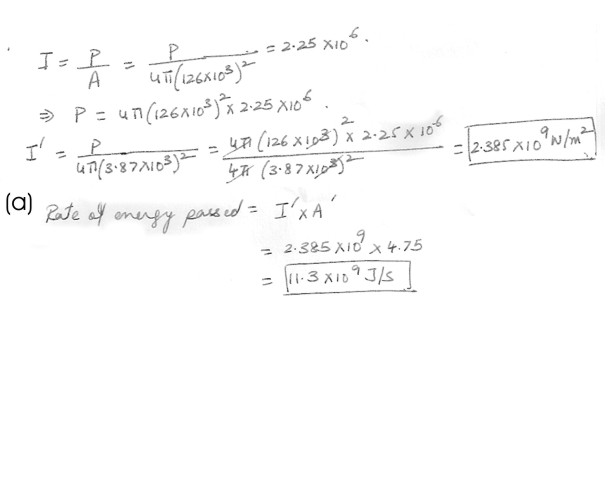 I = P/A = P/4π(126×10³)² = 2.25×10⁶.
⇒ P = 4π(126×10³)² × 2.25×10⁶.
I' = P/4π(3.87×10³)² = 4π(126×10³)² × 2.25×10⁻⁶/4π(3.87×10³)² = 2.385×10⁹ W/m²
(a) Rate of energy passed = I' × A'
= 2.385×10⁹ × 4.75
= 11.3×10⁹ J/s